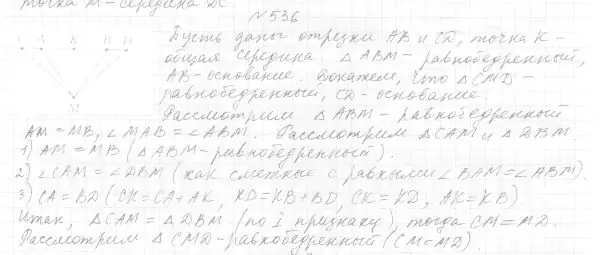 точка М – середина DC.
№536
Пусть даны отрезки АВ и CD, точка К –
общая середина. △ АВМ – равнобедренный,
АВ – основание. Докажем, что △ CMD –
равнобедренный, CD – основание.
Рассмотрим △ АВМ – равнобедренный
АМ = МВ, ∠ МАВ = ∠АВМ. Рассмотрим △САМ и △ DBM.
1) АМ = МВ (△АВМ – равнобедренный).
2) ∠САМ = ∠DBM (как смежные с равными ∠ ВАМ = ∠АВМ)
3) СА = BD (СК = СА + АК, KD = КВ + BD, СК = KD, АК = КВ)
Итак, △САМ = △ DBM (по I признаку), тогда СМ = MD.
Рассмотрим △ CMD – равнобедренный (СМ = MD).